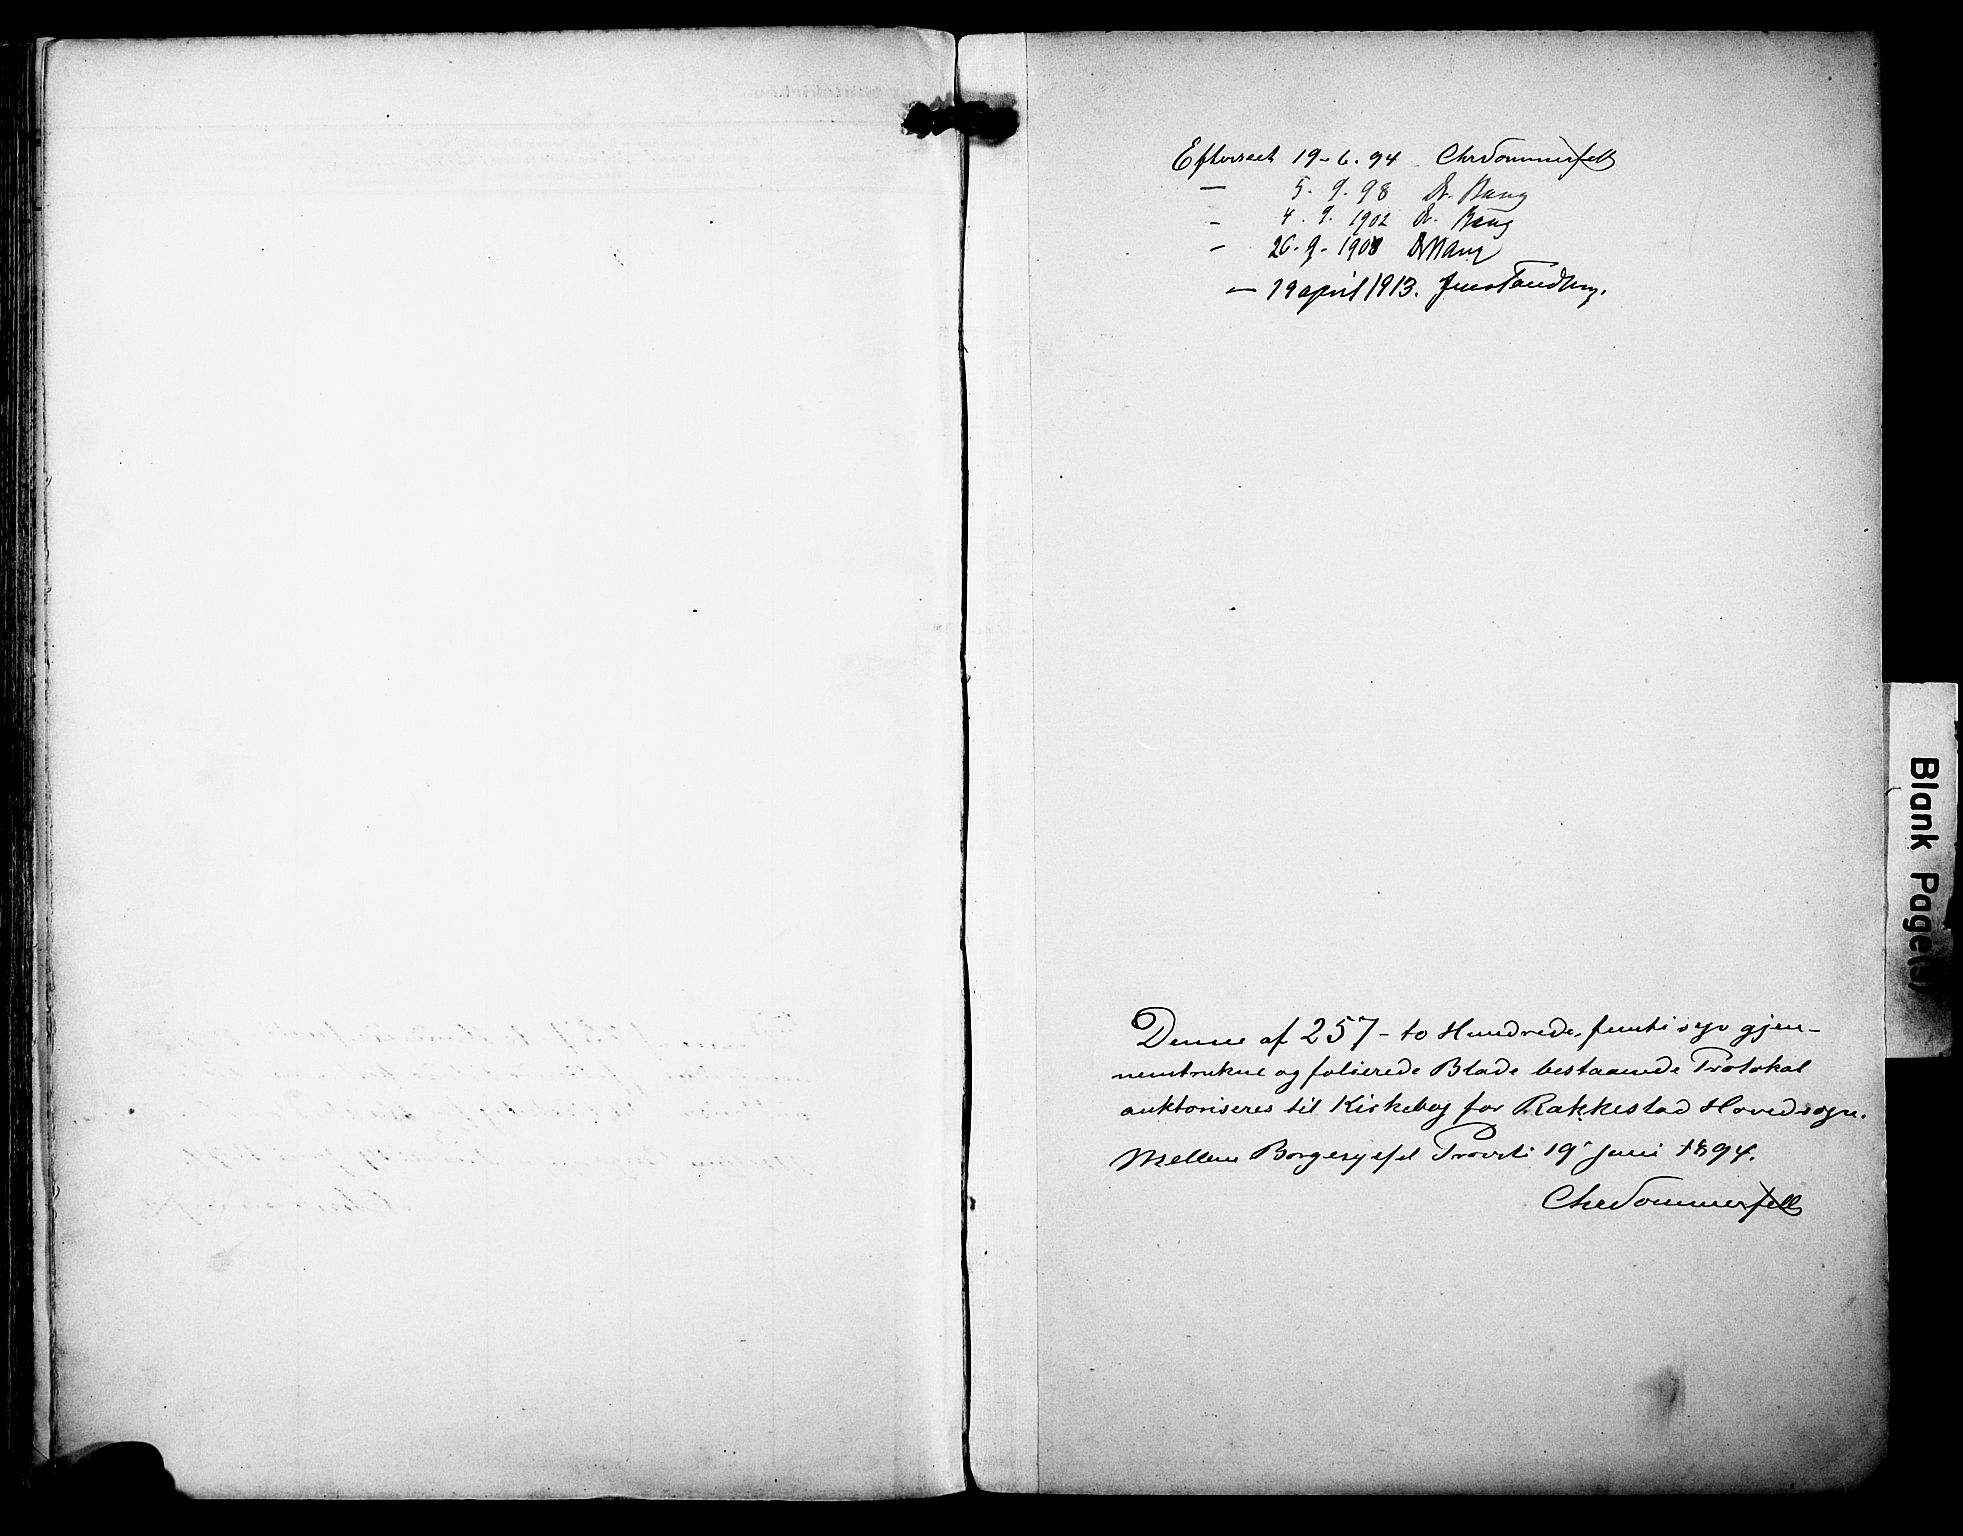 Efterseet 19-6.94 Chr Sommerfelt
— 5.9.98 Dr. Bang
- 4.9.1902 Dr. Bang
- 26-9-1908 Dr Bang
— 19 april 1913. Jens Tandberg.
Denne af 257- to Hundrede, femti syv gjen-
nemtrukne og folierede Blade bestaaende Protokol
auktoriseres til Kirkebog for Rakkestad Hovedsogn.
Mellem Borgesyssel Provsti 19 Juni 1894.
Chr Sommerfelt
Blank Page(s)